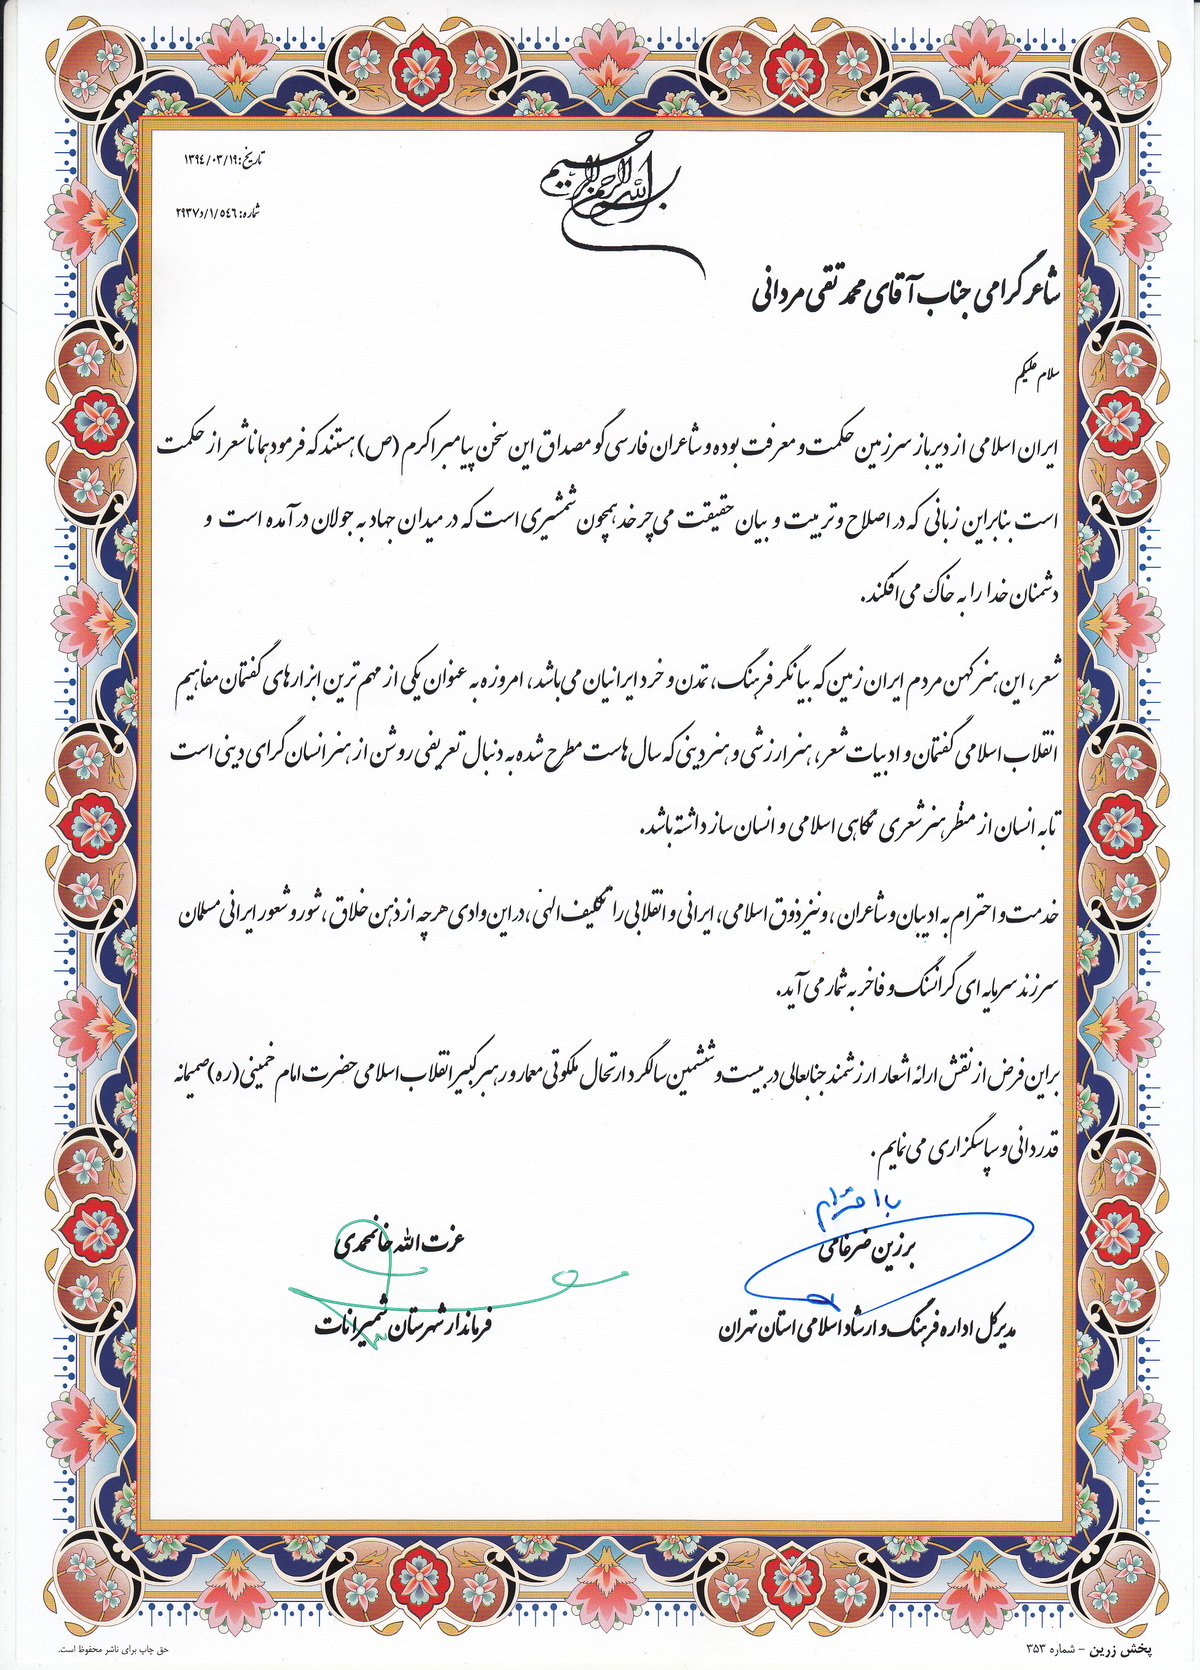 بسم الله الرحمن الرحیم
تاریخ: ۱۳۹٤/۰۳/۱۹
شماره: ۲۹۳۷د/۱/٥٤٦
شاعر گرامی جناب آقای محمد تقی مردانی
سلام علیکم
ایران اسلامی از دیرباز سرزمین حکمت و معرفت بوده و شاعران فارسی گو مصداق این سخن پیامبر اکرم (ص) هستند که فرمود همانا شعر از حکمت
است بنابراین زبانی که در اصلاح و تربیت و بیان حقیقت می چرخد همچون شمشیری است که در میدان جهاد به جولان در آمده است و
دشمنان خدا را به خاک می افکند.
شعر، این هنر کهن مردم ایران زمین که بیانگر فرهنگ، تمدن و خرد ایرانیان می باشد، امروزه به عنوان یکی از مهم ترین ابزارهای گفتمان مفاهیم
انقلاب اسلامی گفتمان و ادبیات شعر، هنر ارزشی و هنر دینی که سال هاست مطرح شده به دنبال تعریفی روشن از هنر انسان گرای دینی است
تا به انسان از منظر هنر شعری نگاهی اسلامی و انسان ساز داشته باشد.
خدمت و احترام به ادیبان و شاعران ، ونیز ذوق اسلامی، ایرانی و انقلابی را تکلیف الهی ، در این وادی هر چه از ذهن خلاق ، شور و شعور ایرانی مسلمان
سر زند سرمایه ای گرانسنگ و فاخر به شمار می آید.
براین فرض از نقش ارائه اشعار ارزشمند جنابعالی در بیست و ششمین سالگرد ارتحال ملکوتی معمار و رهبر کبیر انقلاب اسلامی حضرت امام خمینی (ره) صمیمانه
قدردانی و سپاسگزاری می نمایم .
با احترام
برزین ضرغامی
مدیرکل اداره فرهنگ و ارشاد اسلامی استان تهران
عزت الله خانمحمدی
فرماندار شهرستان شمیرانات
پخش زرین - شماره ۳۵۳
حق چاپ برای ناشر محفوظ است.